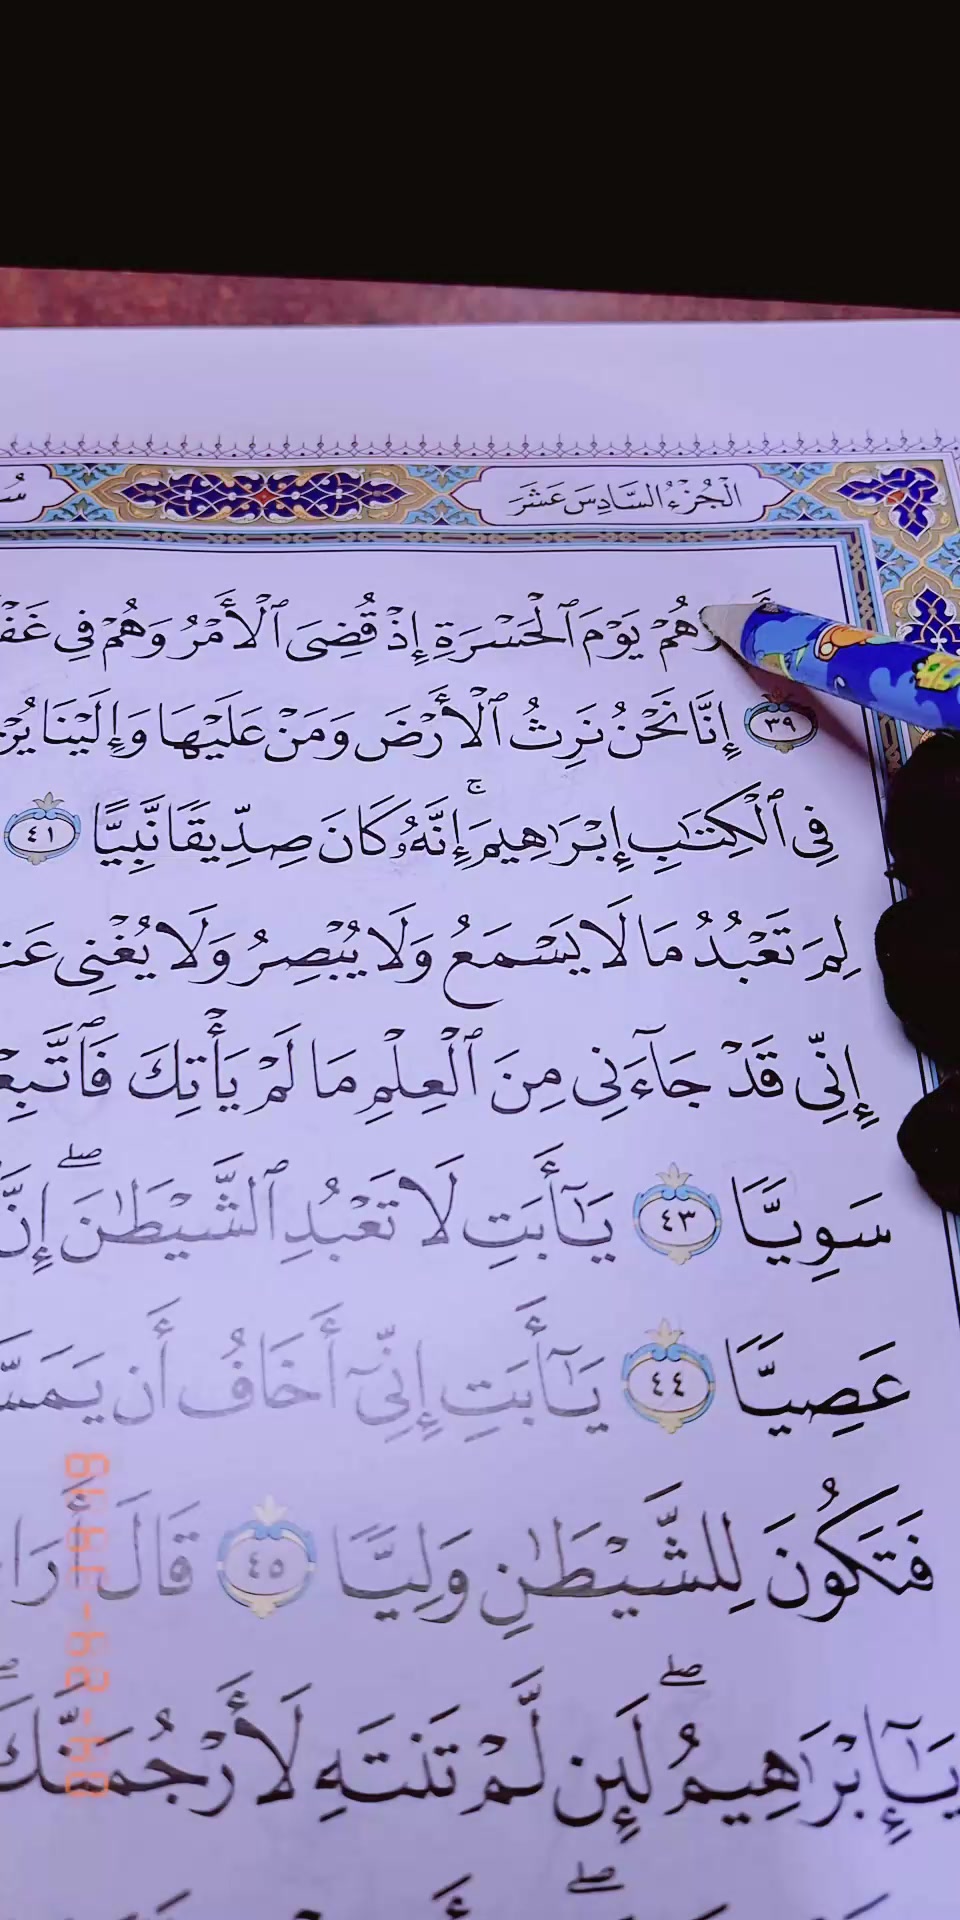 الْجُزْءُ السَّادِسَ عَشَرَ
هُمْ يَوْمَ ٱلْحَسْرَةِ إِذْ قُضِىَ ٱلْأَمْرُ وَهُمْ فِى
٣٩ إِنَّا نَحْنُ نَرِثُ ٱلْأَرْضَ وَمَنْ عَلَيْهَا وَإِلَيْنَا
فِى ٱلْكِتَٰبِ إِبْرَٰهِيمَ ۚ إِنَّهُۥ كَانَ صِدِّيقًا نَّبِيًّا ٤١
لِمَ تَعْبُدُ مَا لَا يَسْمَعُ وَلَا يُبْصِرُ وَلَا يُغْنِى
إِنِّى قَدْ جَآءَنِى مِنَ ٱلْعِلْمِ مَا لَمْ يَأْتِكَ
سَوِيًّا ٤٣ يَٰٓأَبَتِ لَا تَعْبُدِ ٱلشَّيْطَٰنَ ۖ إِنَّ
عَصِيًّا ٤٤ يَٰٓأَبَتِ إِنِّىٓ أَخَافُ أَن
فَتَكُونَ لِلشَّيْطَٰنِ وَلِيًّا ٤٥ قَالَ
يَٰٓإِبْرَٰهِيمُ ۖ لَئِن لَّمْ تَنتَهِ لَأَرْجُمَنَّكَ ۖ